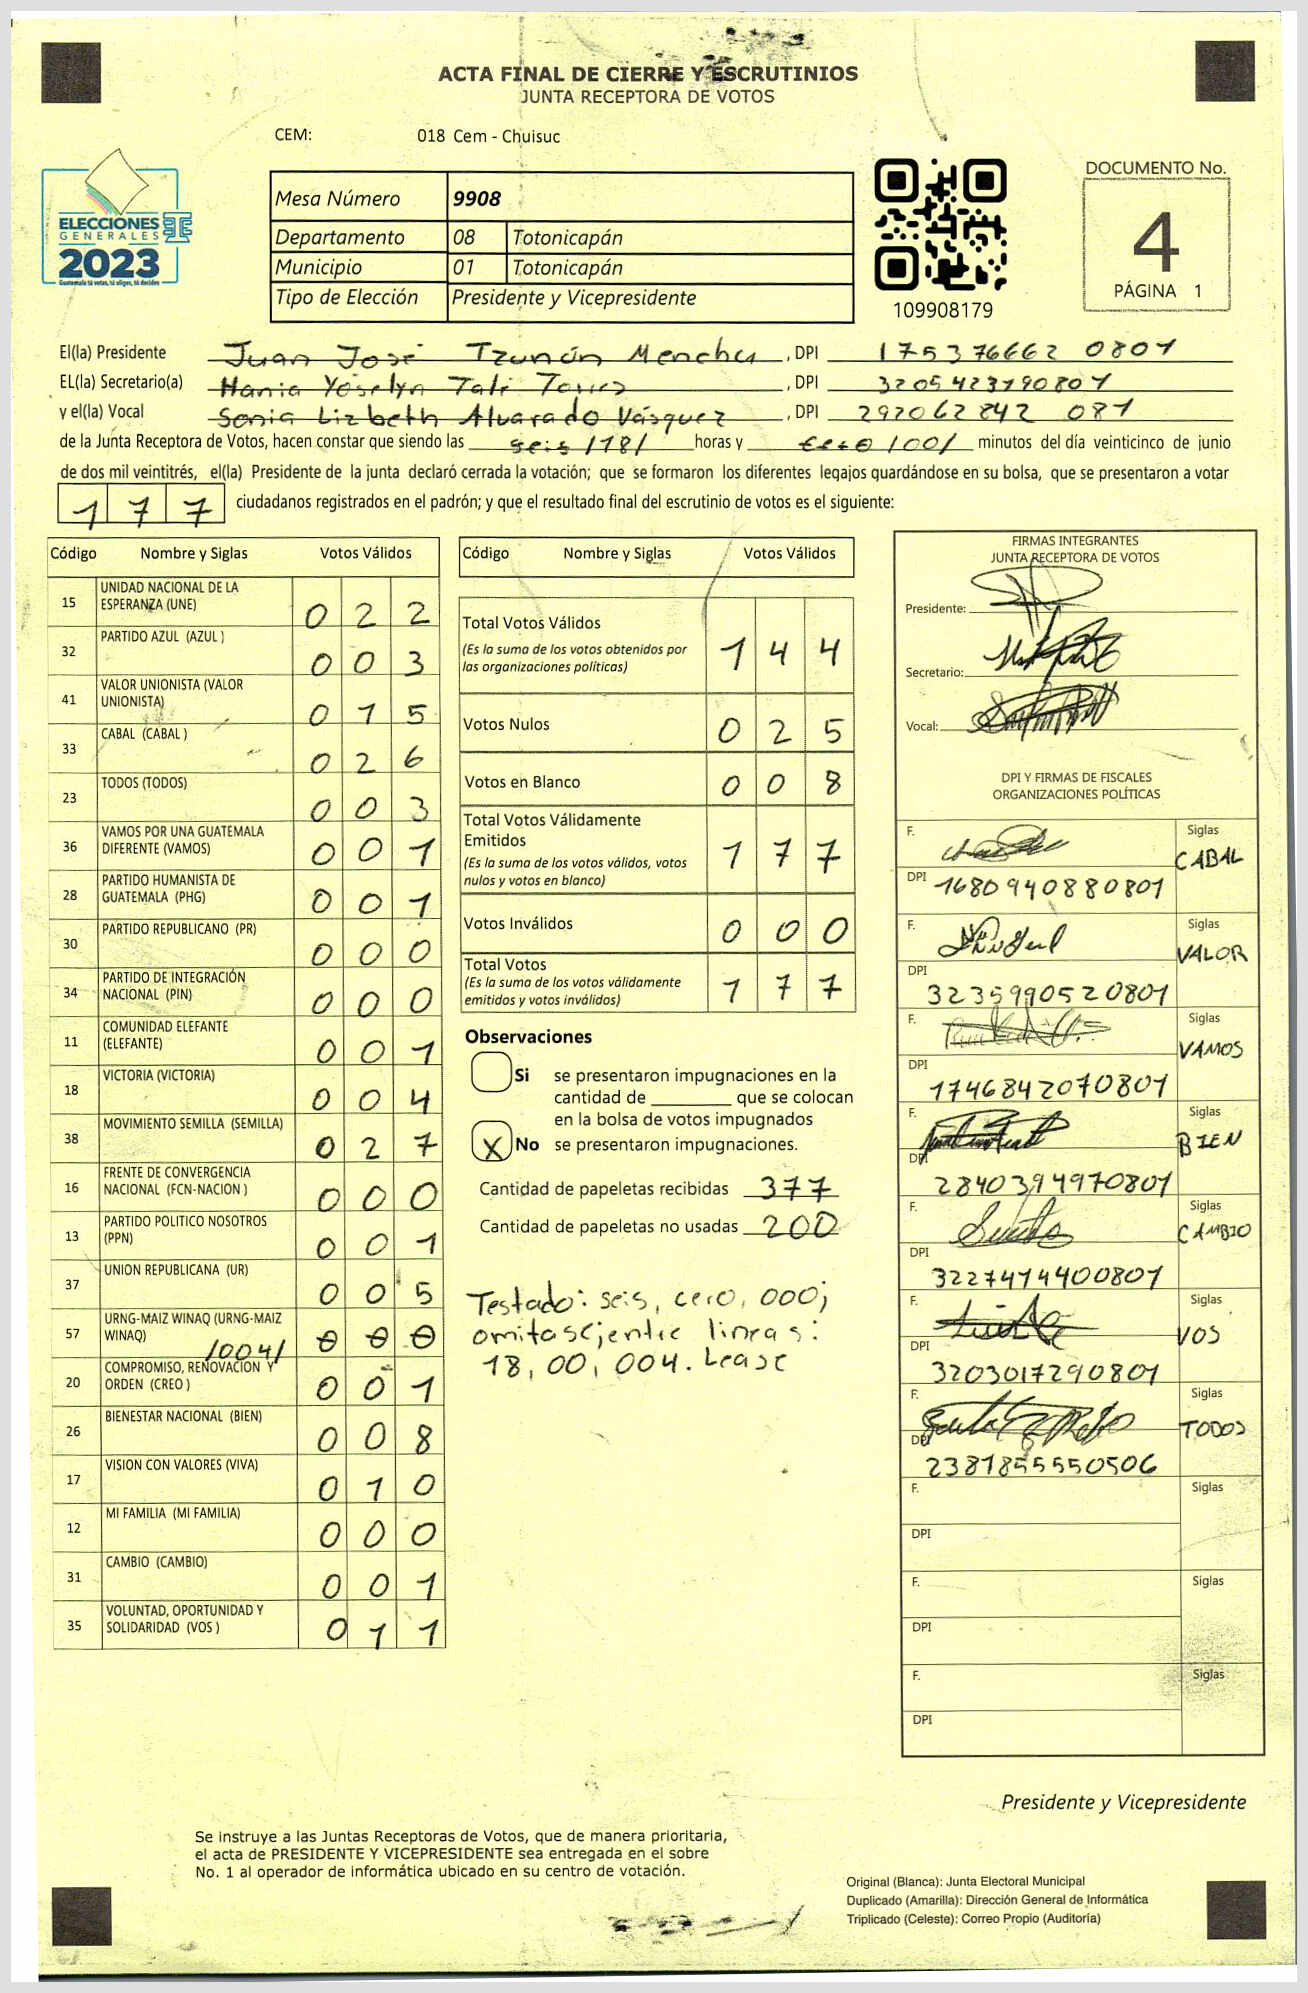 ACTA FINAL DE CIERRE Y ESCRUTINIOS
JUNTA RECEPTORA DE VOTOS
CEM: 018 Cem - Chuisuc
ELECCIONES
GENERALES
2023
Guatemala tú votas, tú eliges, tú decides
TSE
Mesa Número 9908
Departamento 08 Totonicapán
Municipio 01 Totonicapán
Tipo de Elección Presidente y Vicepresidente
109908179
DOCUMENTO No.
4
PÁGINA 1
El(la) Presidente Juan José Tzunún Menchu, DPI 175376662 0801
EL(la) Secretario(a) Hania Yoselyn Talé Torres, DPI 3205423190801
y el(la) Vocal Sonia Lizbeth Alvarado Vásquez, DPI 292062842 081
de la Junta Receptora de Votos, hacen constar que siendo las seis /18/ horas y cero /00/ minutos del día veinticinco de junio
de dos mil veintitrés, el(la) Presidente de la junta declaró cerrada la votación; que se formaron los diferentes legajos quardándose en su bolsa, que se presentaron a votar
177 ciudadanos registrados en el padrón; y que el resultado final del escrutinio de votos es el siguiente:
Código Nombre y Siglas Votos Válidos
15 UNIDAD NACIONAL DE LA ESPERANZA (UNE) 022
32 PARTIDO AZUL (AZUL ) 003
41 VALOR UNIONISTA (VALOR UNIONISTA) 015
33 CABAL (CABAL ) 026
23 TODOS (TODOS) 003
36 VAMOS POR UNA GUATEMALA DIFERENTE (VAMOS) 001
28 PARTIDO HUMANISTA DE GUATEMALA (PHG) 001
30 PARTIDO REPUBLICANO (PR) 000
34 PARTIDO DE INTEGRACIÓN NACIONAL (PIN) 000
11 COMUNIDAD ELEFANTE (ELEFANTE) 001
18 VICTORIA (VICTORIA) 004
38 MOVIMIENTO SEMILLA (SEMILLA) 027
16 FRENTE DE CONVERGENCIA NACIONAL (FCN-NACION ) 000
13 PARTIDO POLITICO NOSOTROS (PPN) 001
37 UNION REPUBLICANA (UR) 005
57 URNG-MAIZ WINAQ (URNG-MAIZ WINAQ) /004/ 000
20 COMPROMISO, RENOVACION Y ORDEN (CREO ) 001
26 BIENESTAR NACIONAL (BIEN) 008
17 VISION CON VALORES (VIVA) 010
12 MI FAMILIA (MI FAMILIA) 000
31 CAMBIO (CAMBIO) 001
35 VOLUNTAD, OPORTUNIDAD Y SOLIDARIDAD (VOS ) 011
Código Nombre y Siglas Votos Válidos
Total Votos Válidos 144
(Es la suma de los votos obtenidos por
las organizaciones políticas)
Votos Nulos 025
Votos en Blanco 008
Total Votos Válidamente
Emitidos 177
(Es la suma de los votos válidos, votos
nulos y votos en blanco)
Votos Inválidos 000
Total Votos 177
(Es la suma de los votos válidamente
emitidos y votos inválidos)
Observaciones
Si se presentaron impugnaciones en la
cantidad de ________ que se colocan
en la bolsa de votos impugnados
X No se presentaron impugnaciones.
Cantidad de papeletas recibidas 377
Cantidad de papeletas no usadas 200
Testado: seis, cero, 000;
omitase; entre lineas:
18, 00, 004. Lease
FIRMAS INTEGRANTES
JUNTA RECEPTORA DE VOTOS
Presidente:
Secretario:
Vocal:
DPI Y FIRMAS DE FISCALES
ORGANIZACIONES POLÍTICAS
F. Siglas CABAL
DPI 1680940880801
F. Siglas VALOR
DPI 3235990520801
F. Siglas VAMOS
DPI 1746842070801
F. Siglas BIEN
DPI 2840394970801
F. Siglas CAMBIO
DPI 3227414400801
F. Siglas VOS
DPI 3203017290801
F. Siglas TODOS
DPI 2381855550506
F. Siglas
DPI
F. Siglas
DPI
F. Siglas
DPI
Presidente y Vicepresidente
Se instruye a las Juntas Receptoras de Votos, que de manera prioritaria,
el acta de PRESIDENTE Y VICEPRESIDENTE sea entregada en el sobre
No. 1 al operador de informática ubicado en su centro de votación.
Original (Blanca): Junta Electoral Municipal
Duplicado (Amarilla): Dirección General de Informática
Triplicado (Celeste): Correo Propio (Auditoría)